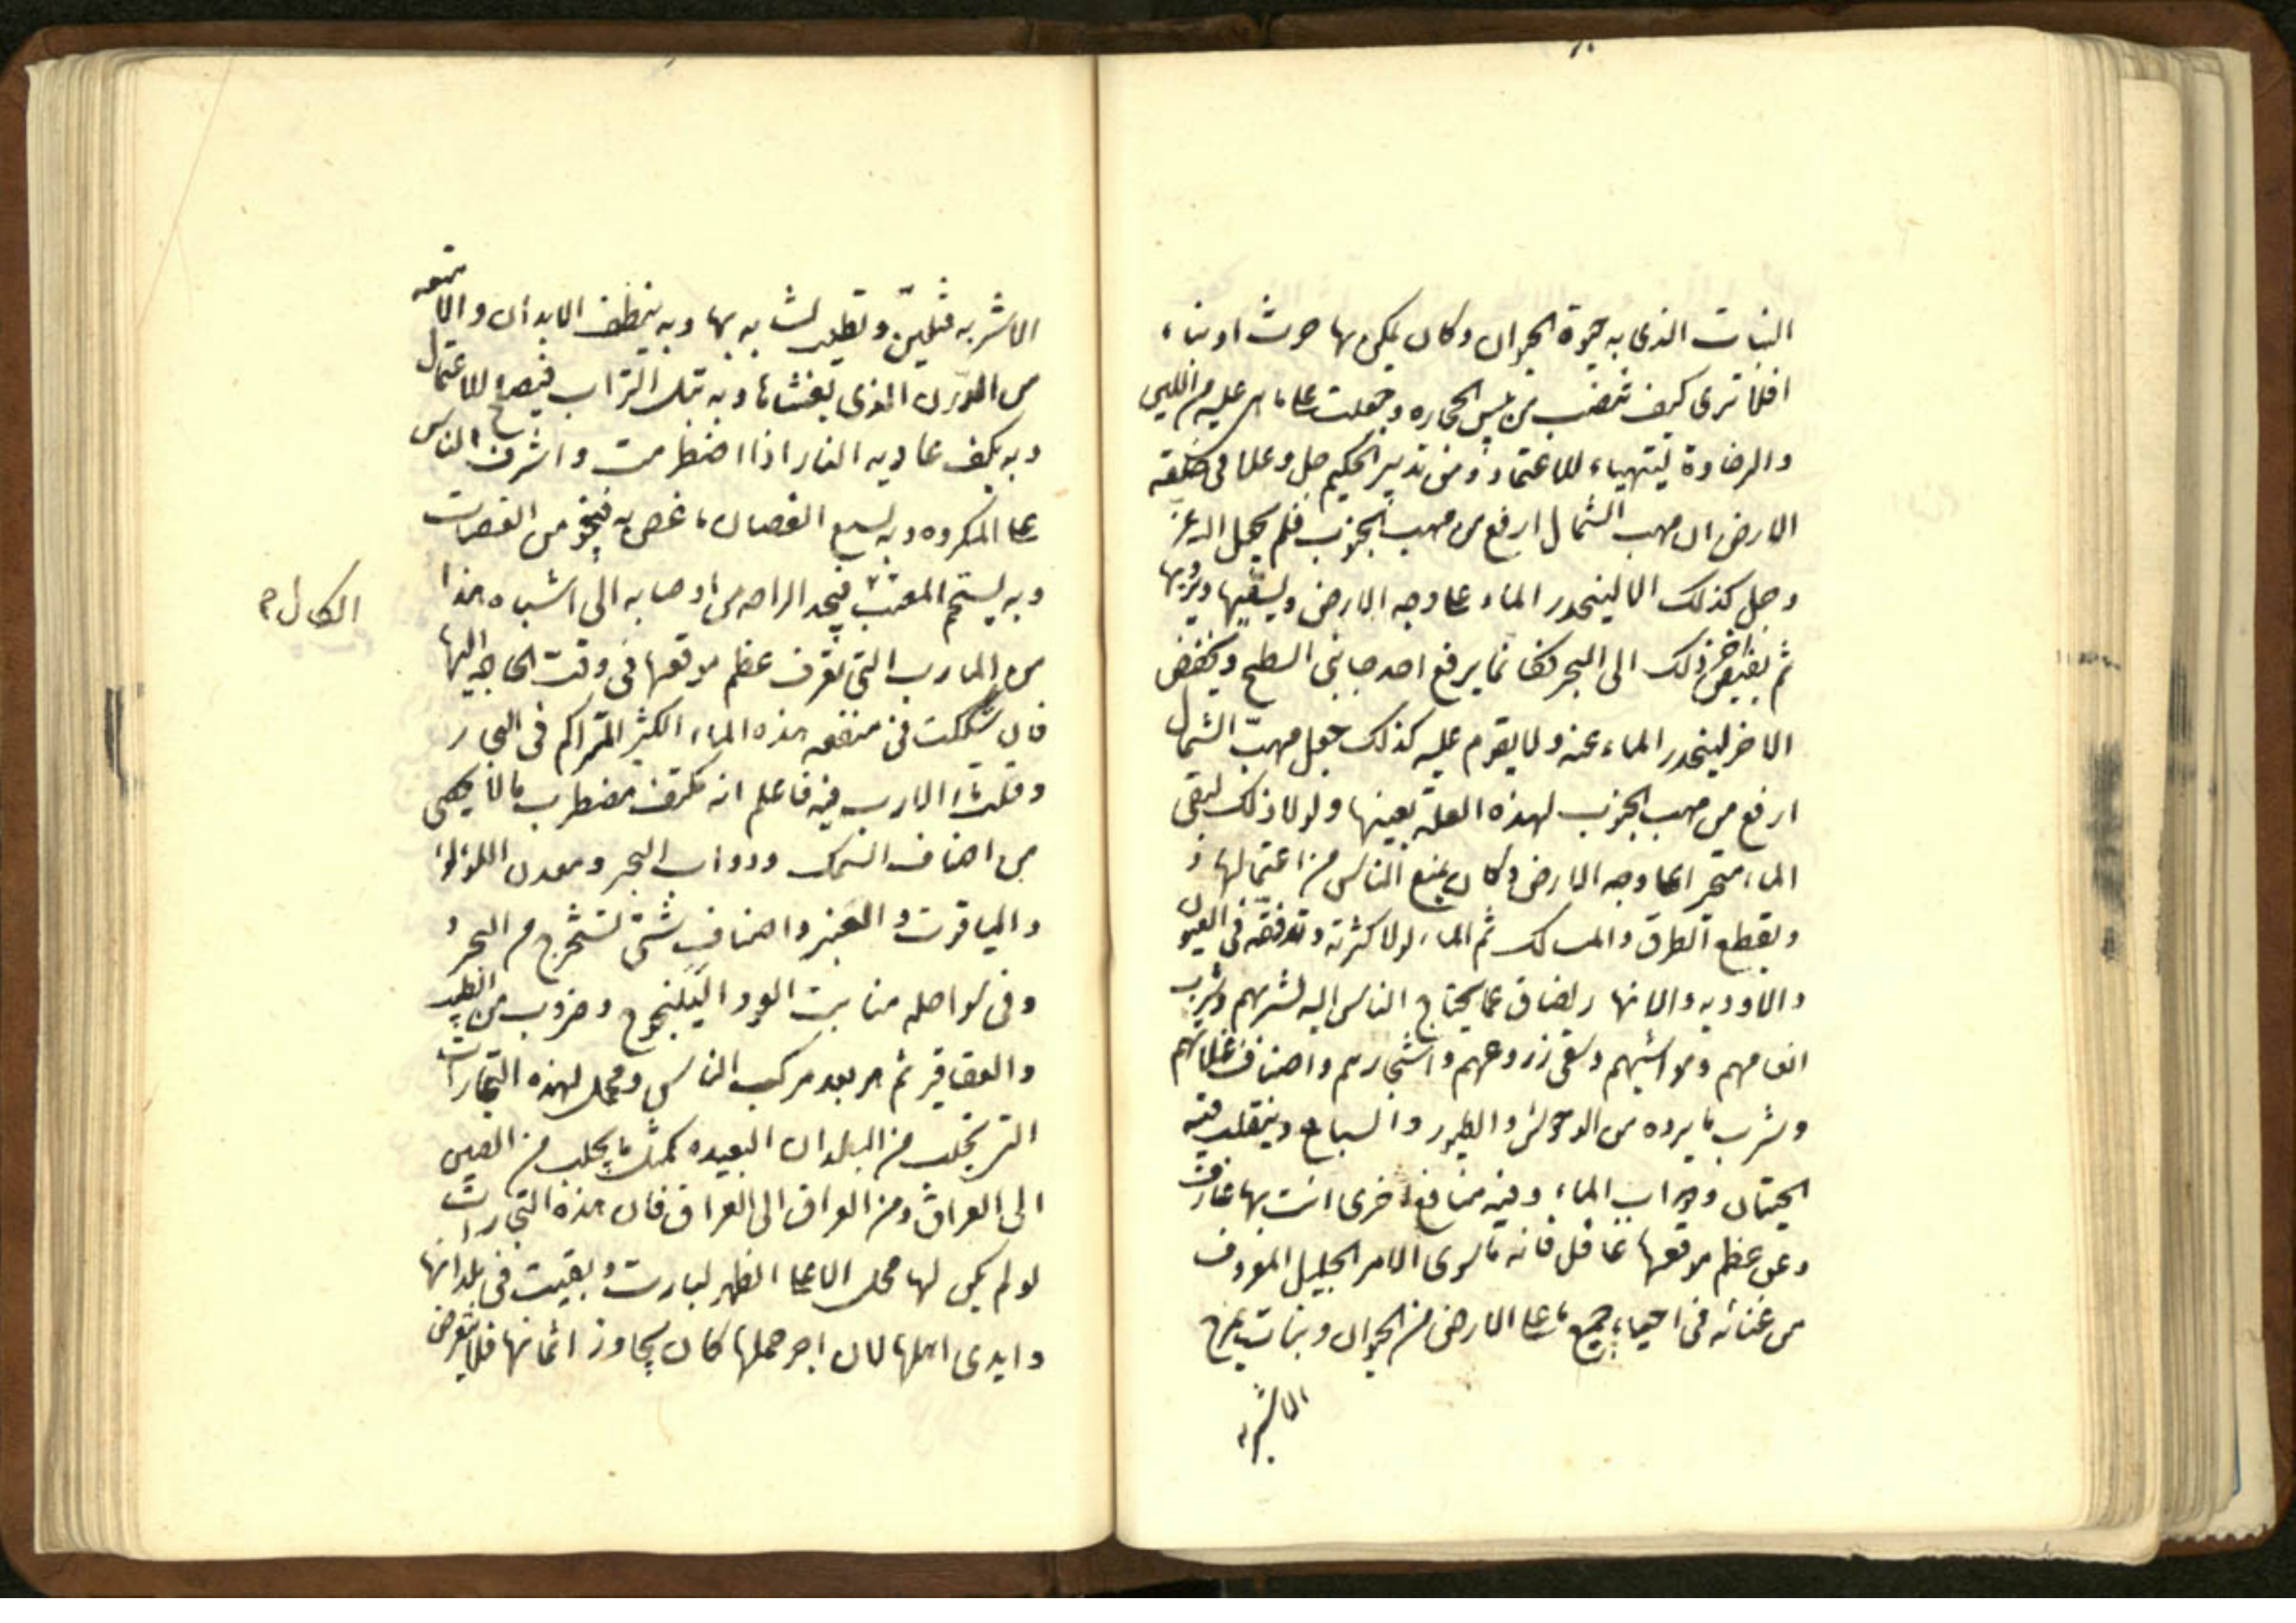 النبات الذى به حيوة الحيوان وكان يمكن بها حرث او بناء
افلا ترى كيف تنصب من يبس الحجاره وجعلت على ما هى عليه من اللين
والرخاوة ليتهياء للاعتماد ومن تدبير الحكيم جل وعلا فى خلقة
الارض ان مهب الشمال ارفع من مهب الجنوب فلم يجعل الله عز
وجل كذلك الا لينحدر الماء على وجه الارض ويسقيها ويرويها
ثم يفيض اخر ذلك الى البحر فكانما يرفع احد جانبى السطح ويخفض
الاخر لينحدر الماء عنه ولا يقوم عليه كذلك جعل مهب الشمال
ارفع من مهب الجنوب لهذه العلة بعينها ولولا ذلك لبقى
الماء متحيرا على وجه الارض وكان يمنع الناس من اعتمالها و
ويقطع الطرق والمسالك ثم الماء لولا كثرته وتدفقه فى العيون
والاوديه والانهار لضاق عما يحتاج الناس اليه لشربهم وشرب
انعامهم ومواشيهم وسقى زروعهم واشجارهم واصناف غلاتهم
وشرب ما يرده من الوحوش والطيور والسباع ويتقلب فيه
الحيتان ودواب الماء وفيه منافع اخرى انت بها عارف
وعن عظم موقعها غافل فانه ما سوى الامر الجليل المعروف
من غنائه فى احياء جميع ما على الارض من الحيوان ونبات يمزج
الاشربه
الاشربه فتلين وتطيب لشاربها وبه ينظف الابدان والامتعه
من الدرن الذى يغشاها وبه تبل التراب فيصلح للاعتمال
وبه يكف عاديه النار اذا اضطرمت واشرف الناس
على المكروه وبه يسيغ الغصان ما غص به فينجو من الغصات
وبه يستحم المتعب فيجد الراحه من اوصابه الى اشباه هذا
الكال م
من المارب التى تعرف عظم موقعها فى وقت الحاجه اليها
فان شككت فى منفعه هذه الماء الكثير المتراكم فى البحار
وقلت ما الارب فيه فاعلم انه مكتنف مضطرب ما لا يحصى
من اصناف السمك ودواب البحر ومعدن اللؤلؤ
والياقوت والعنبر واصناف شتى تستخرج من البحر و
وفى سواحله منابت العود اليلنجوج وضروب من الطيب
والعقاقير ثم هو بعد مركب الناس ومحمل لهذه التجارات
التى تجلب من البلدان البعيده كمثل ما يجلب من الصين
الى العراق ومن العراق الى العراق فان هذه التجارات
لو لم يكن لها محمل الا على الظهر لبارت وبقيت فى بلدانها
وايدى اهلها لان اجر حملها كان يجاوز اثمانها فلا يتعرض